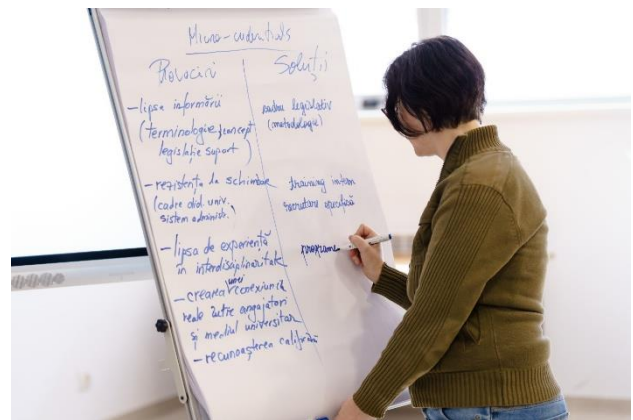 Micro-credentials
Provocări
Soluții
- lipsa informării
(terminologie, concept
legislație suport)
- rezistența la schimbare
(cadre did. univ.
sistem administr.)
- lipsa de experiență
în interdisciplinaritate
- crearea unei conexiuni
reale între angajatori
și mediul universitar
- recunoașterea calificării
cadru legislativ
(metodologie)
training intern
programe